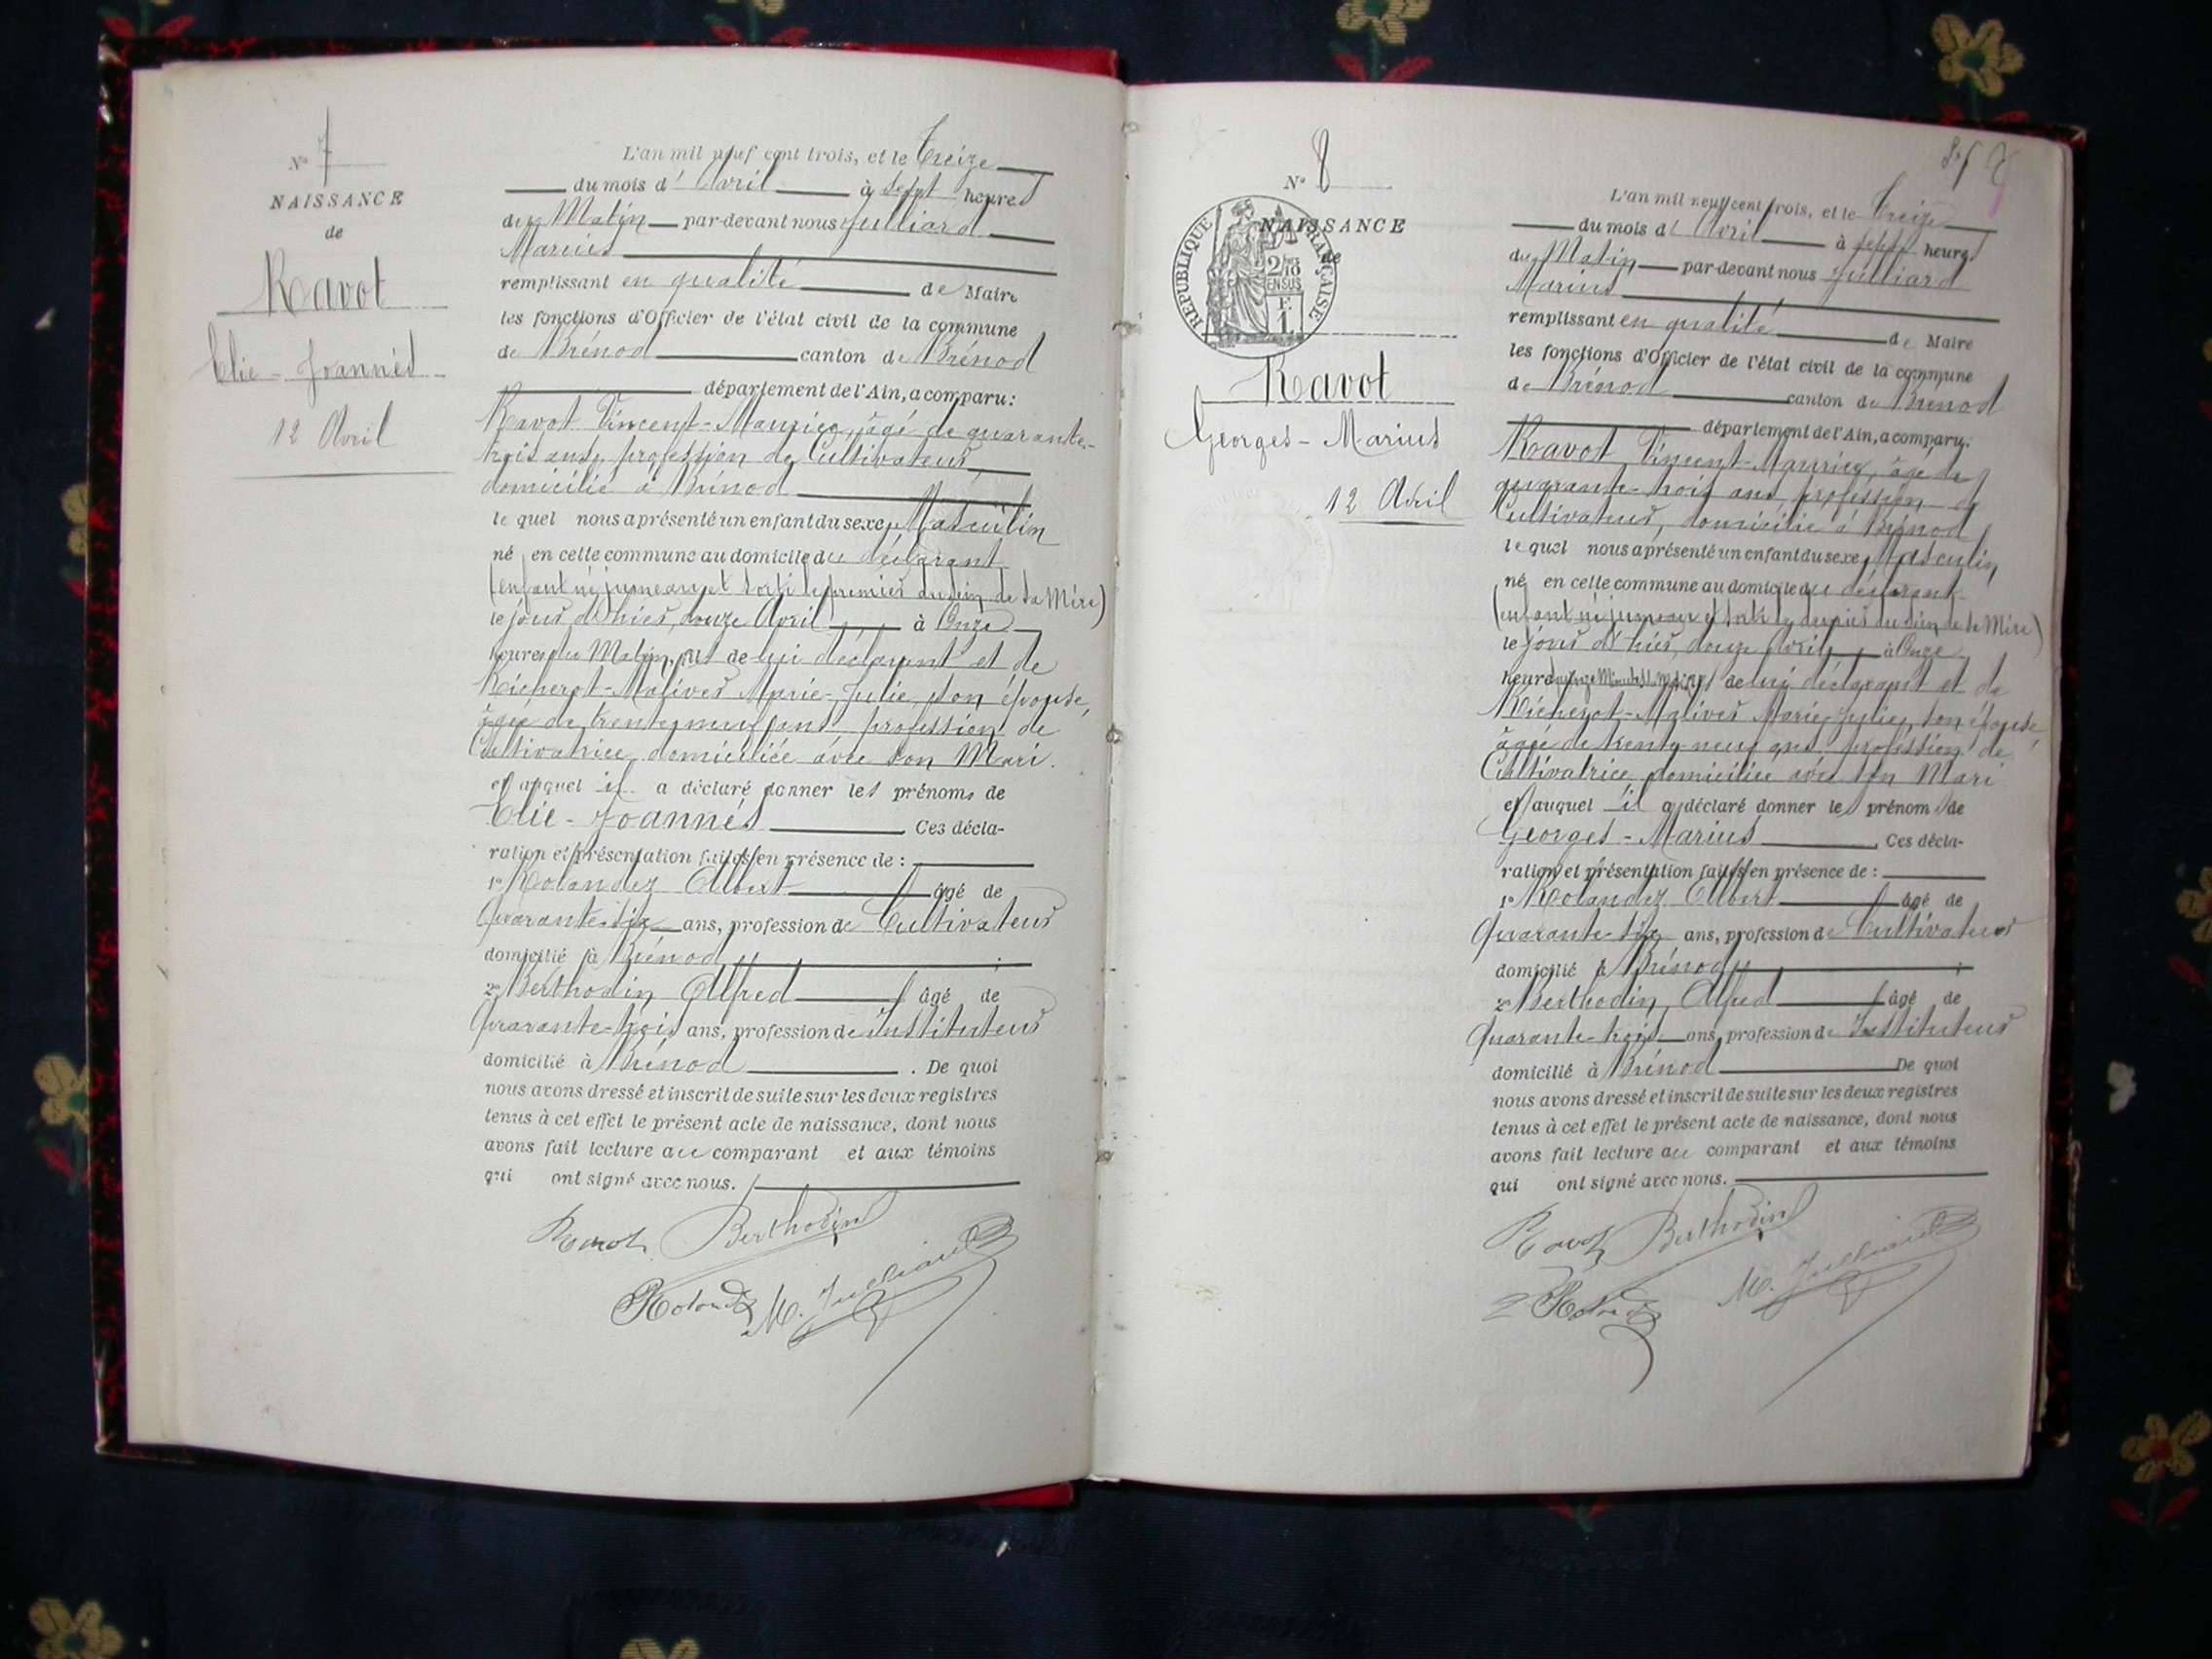 N° 7
NAISSANCE
de
Ravot
Elie - Joannès
12 Avril
L'an mil neuf cent trois, et le Treize
du mois d'Avril à sept heures
du Matin par-devant nous Julliard
Marius
remplissant en qualité de Maire
les fonctions d'Officier de l'état civil de la commune
de Brénod canton de Brénod
département de l'Ain, a comparu:
Ravot Vincent-Maurice, âgé de quarante-
trois ans, profession de Cultivateur
domicilié à Brénod
le quel nous a présenté un enfant du sexe Masculin
né en cette commune au domicile du déclarant
(enfant né jumeau et sorti le premier du sein de sa Mère)
le jour d'hier, douze Avril à Onze
heures du Matin, fils de lui déclarant et de
Richerot-Malivert Marie-Julie, son épouse,
âgée de trente-neuf ans profession de
Cultivatrice domiciliée avec son Mari.
et auquel il a déclaré donner les prénoms de
Elie - Joannès Ces décla-
ration et présentation faites en présence de :
1° Rolandez Albert âgé de
Quarante-six ans, profession de Cultivateur
domicilié à Brénod ;
2° Berthodin Alfred âgé de
Quarante-trois ans, profession de Instituteur
domicilié à Brénod . De quoi
nous avons dressé et inscrit de suite sur les deux registres
tenus à cet effet le présent acte de naissance, dont nous
avons fait lecture au comparant et aux témoins
qui ont signé avec nous.
Ravot Berthodin
Rolandez M. Julliard
8
N° 8
REPUBLIQUE FRANÇAISE
2/10 EN SUS
F. 1
NAISSANCE
de
Ravot
Georges - Marius
12 Avril
L'an mil neuf cent trois, et le Treize
du mois d'Avril à sept heures
du Matin par-devant nous Julliard
Marius
remplissant en qualité de Maire
les fonctions d'Officier de l'état civil de la commune
de Brénod canton de Brénod
département de l'Ain, a comparu:
Ravot Vincent-Maurice, âgé de
quarante-trois ans, profession de
Cultivateur, domicilié à Brénod
le quel nous a présenté un enfant du sexe Masculin
né en cette commune au domicile du déclarant
(enfant né jumeau et sorti le dernier du sein de sa Mère)
le jour d'hier, douze Avril à Onze
heures du Matin, fils de lui déclarant et de
Richerot-Malivert Marie-Julie, son épouse,
âgée de trente-neuf ans profession de
Cultivatrice domiciliée avec son Mari
et auquel il a déclaré donner les prénoms de
Georges - Marius Ces décla-
ration et présentation faites en présence de :
1° Rolandez Albert âgé de
Quarante-six ans, profession de Cultivateur
domicilié à Brénod ;
2° Berthodin, Alfred âgé de
Quarante-trois ans, profession de Instituteur
domicilié à Brénod De quoi
nous avons dressé et inscrit de suite sur les deux registres
tenus à cet effet le présent acte de naissance, dont nous
avons fait lecture au comparant et aux témoins
qui ont signé avec nous.
Ravot Berthodin
Rolandez M. Julliard